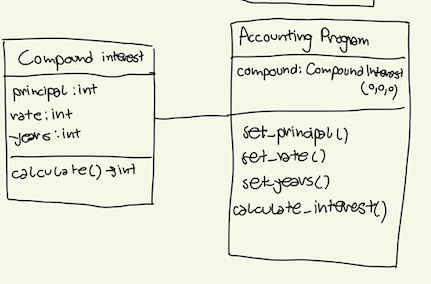 Compound interest
principal : int
rate : int
years : int
calculate() → int
Accounting Program
compound: Compound Interest
(0,0,0)
set_principal()
set_rate()
set_years()
calculate_interest()